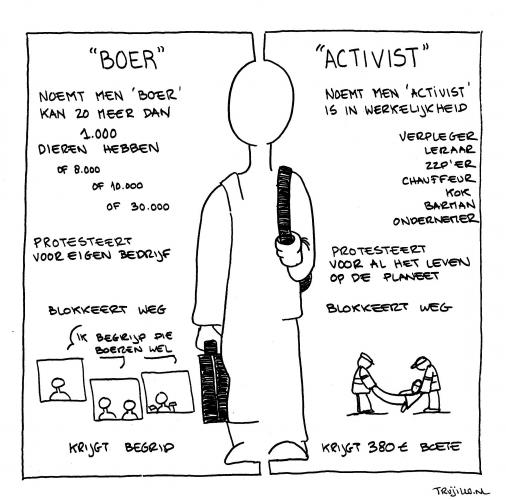 "BOER"
NOEMT MEN 'BOER'
KAN ZO MEER DAN
1.000
DIEREN HEBBEN
OF 8.000
OF 10.000
OF 30.000
PROTESTEERT
VOOR EIGEN BEDRIJF
BLOKKEERT WEG
IK BEGRIJP DIE
BOEREN WEL
KRIJGT BEGRIP
"ACTIVIST"
NOEMT MEN 'ACTIVIST'
IS IN WERKELIJKHEID
VERPLEGER
LERAAR
ZZP'ER
CHAUFFEUR
KOK
BARMAN
ONDERNEMER
PROTESTEERT
VOOR AL HET LEVEN
OP DE PLANEET
BLOKKEERT WEG
KRIJGT 380€ BOETE
TRUJILLO.NL